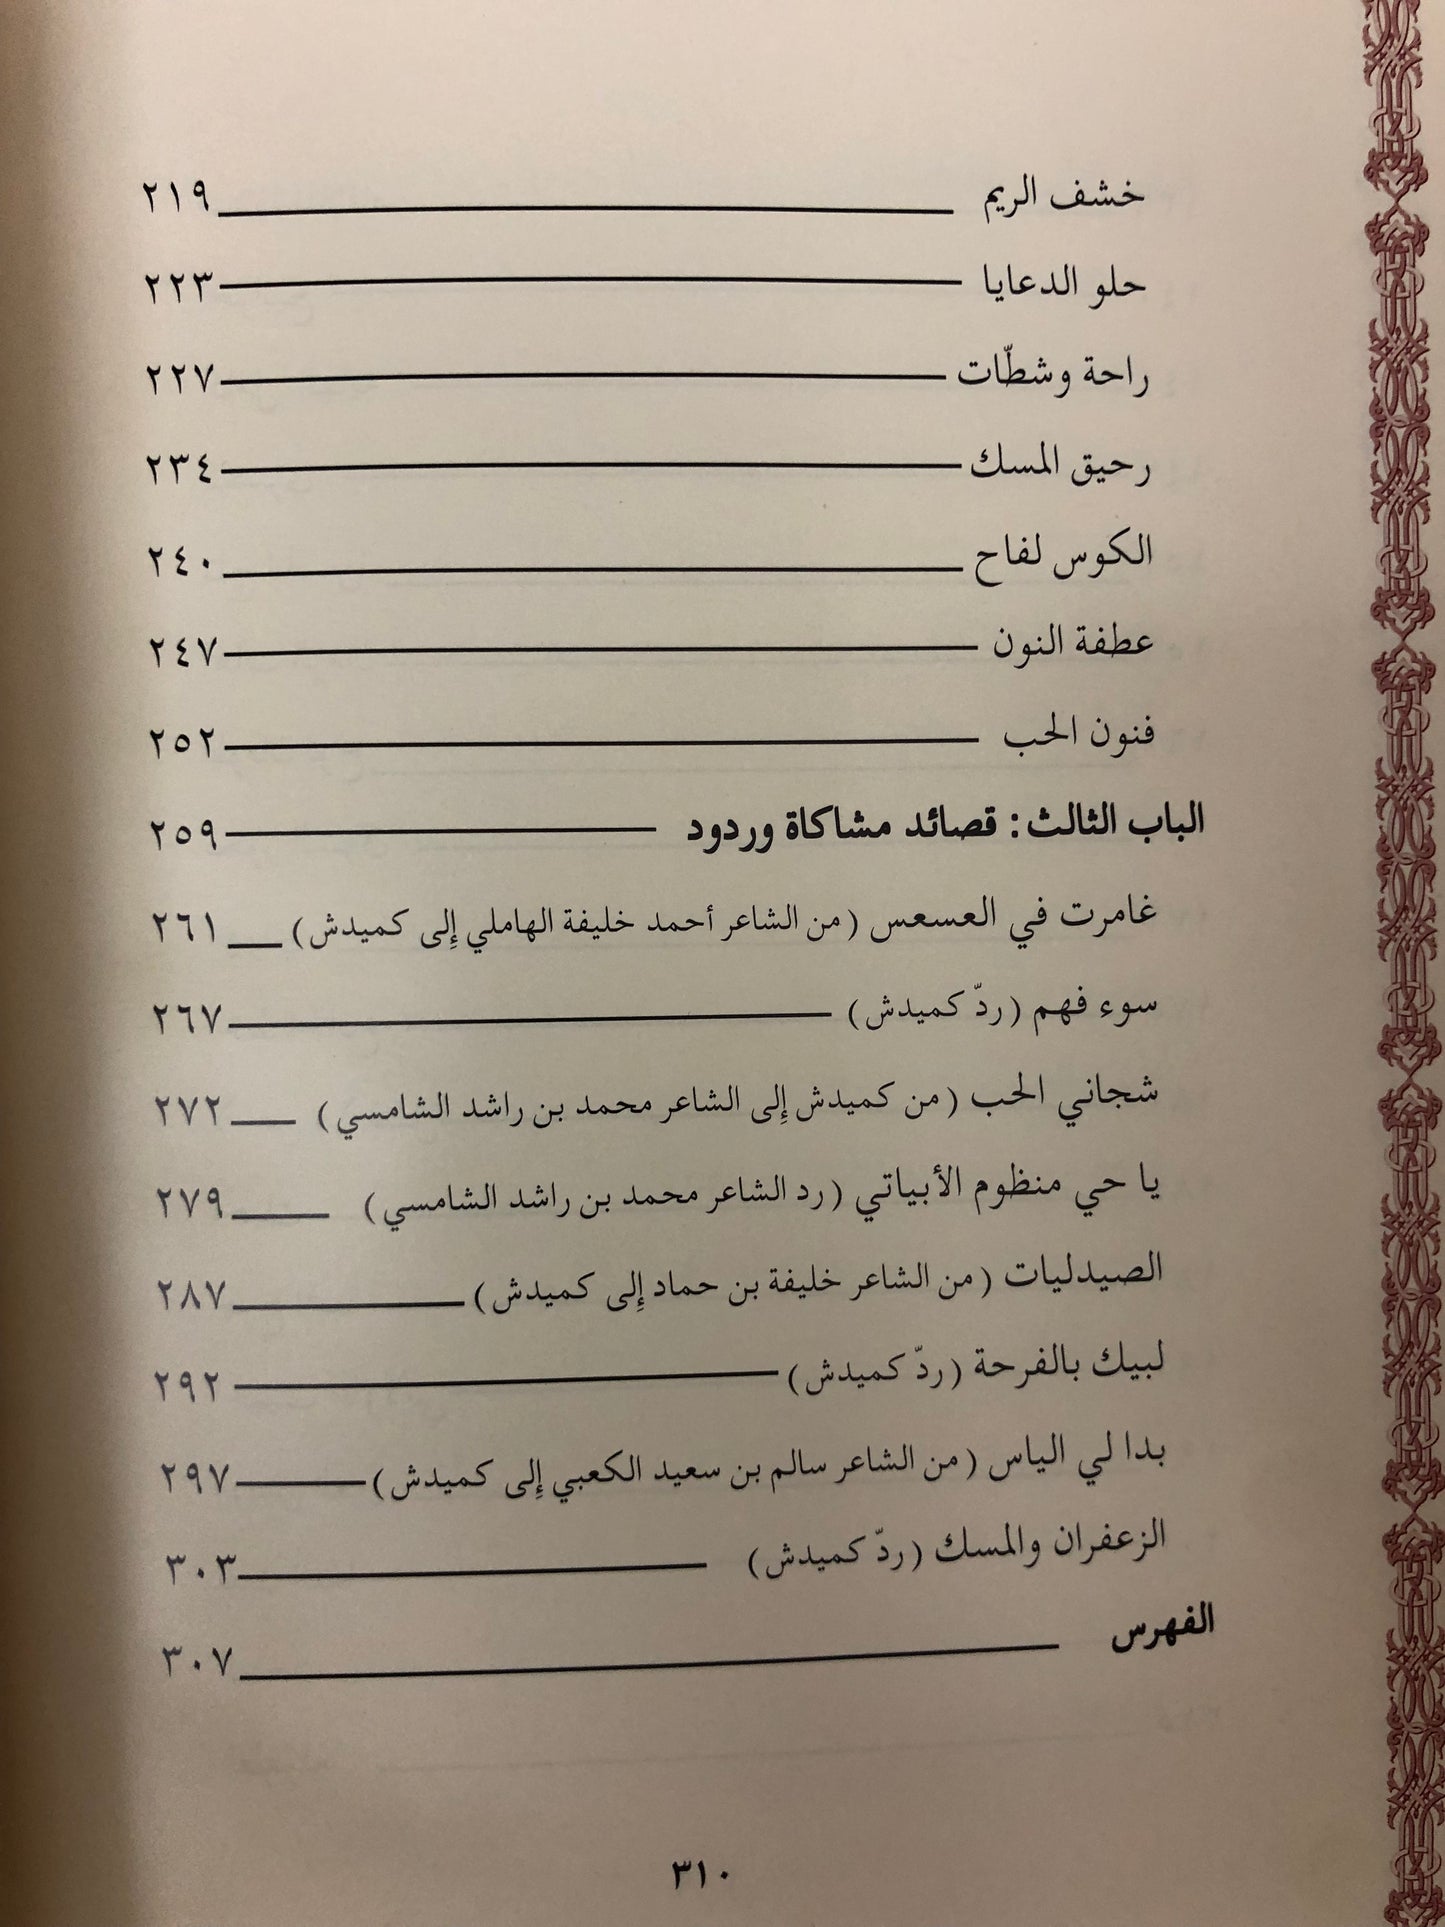 خشف الريم ٢١٩
حلو الدعايا ٢٢٣
راحة وشطّات ٢٢٧
رحيق المسك ٢٣٤
الكوس لفاح ٢٤٠
عطفة النون ٢٤٧
فنون الحب ٢٥٢
الباب الثالث: قصائد مشاكاة وردود ٢٥٩
غامرت في العسعس (من الشاعر أحمد خليفة الهاملي إلى كميدش) ٢٦١
سوء فهم (ردّ كميدش) ٢٦٧
شجاني الحب (من كميدش إلى الشاعر محمد بن راشد الشامسي) ٢٧٢
يا حي منظوم الأبياتي (رد الشاعر محمد بن راشد الشامسي) ٢٧٩
الصيدليات (من الشاعر خليفة بن حماد إلى كميدش) ٢٨٧
لبيك بالفرحة (ردّ كميدش) ٢٩٢
بدا لي الياس (من الشاعر سالم بن سعيد الكعبي إلى كميدش) ٢٩٧
الزعفران والمسك (ردّ كميدش) ٣٠٣
الفهرس ٣٠٧
٣١٠